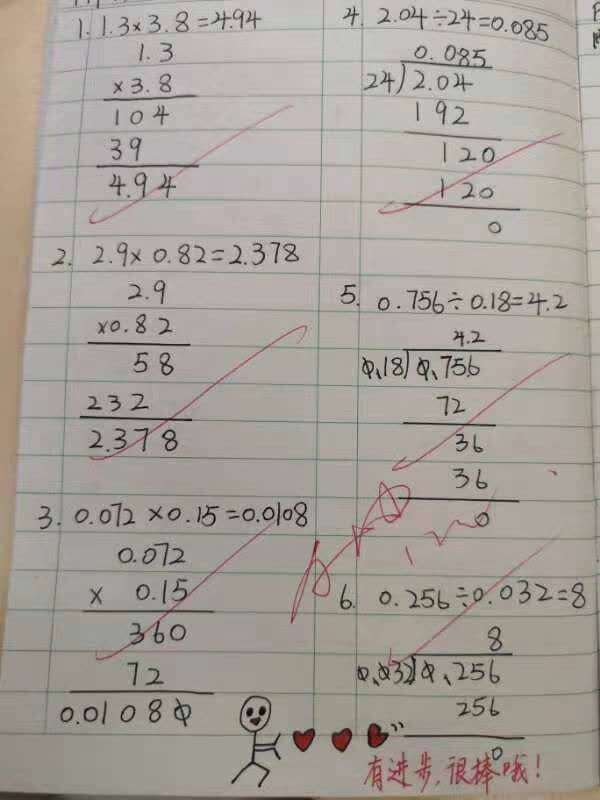 1. 1.3×3.8=4.94
1.3
×3.8
104
39
4.94
2. 2.9×0.82=2.378
2.9
×0.82
58
232
2.378
3. 0.072×0.15=0.0108
0.072
× 0.15
360
72
0.01080
4. 2.04÷24=0.085
0.085
24)2.04
192
120
120
0
5. 0.756÷0.18=4.2
4.2
0.18)0.756
72
36
36
0
6. 0.256÷0.032=8
8
0.032)0.256
256
0
有进步,很棒哦!